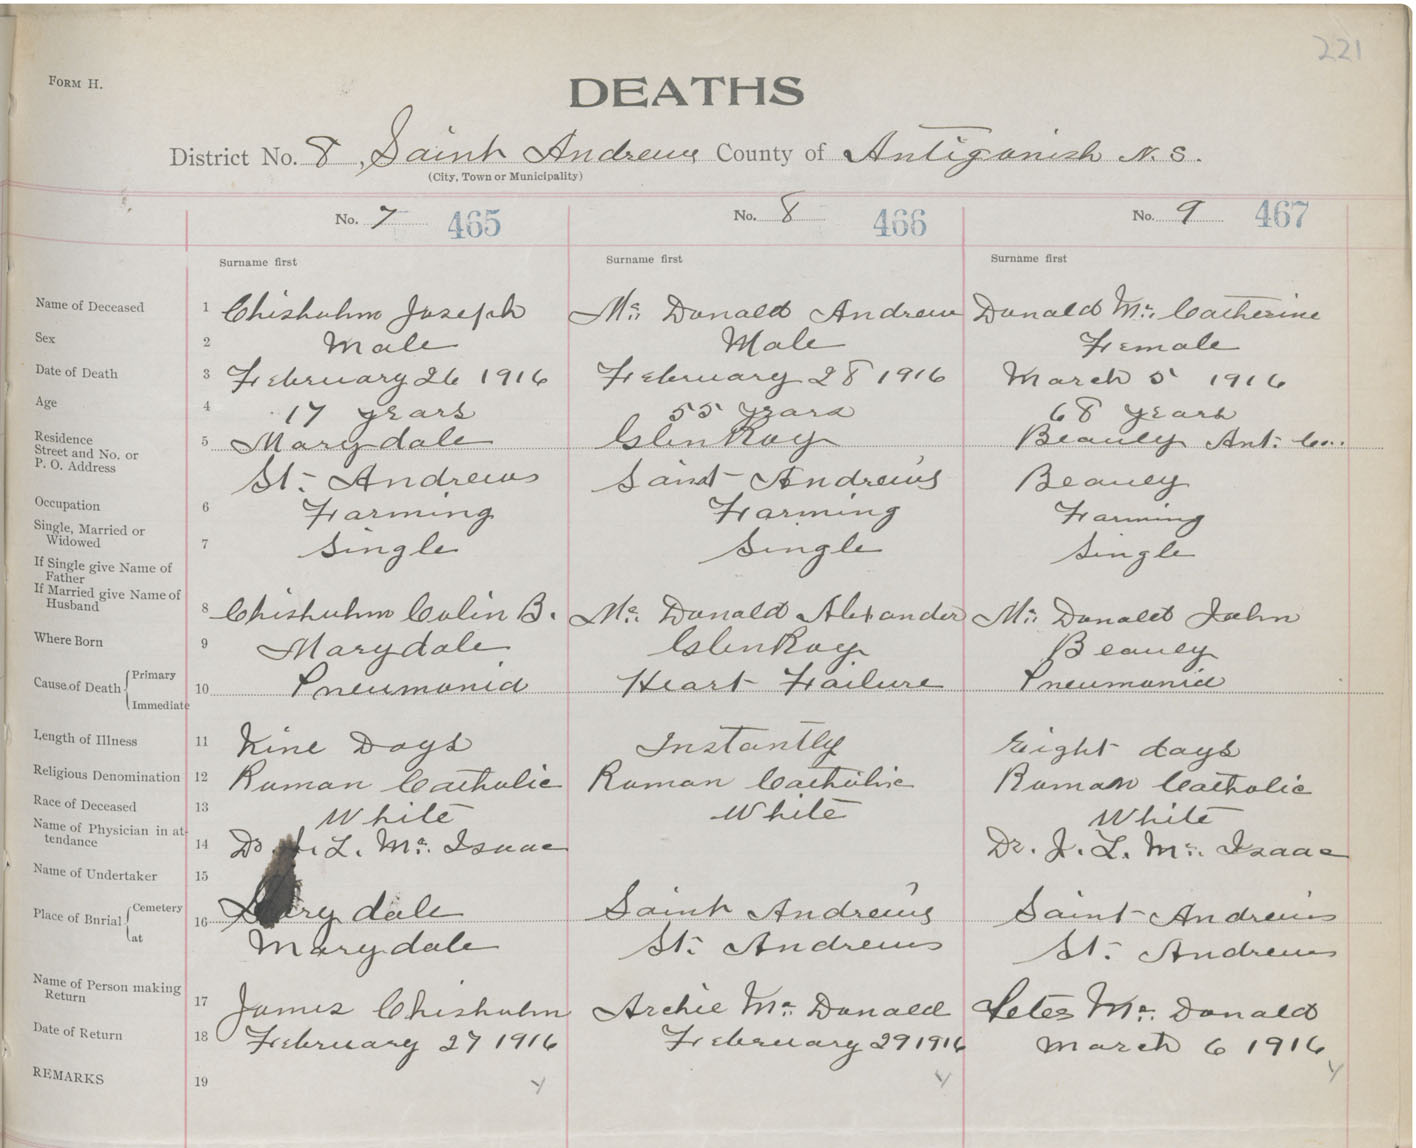 221
FORM H.
DEATHS
District No. 8, Saint Andrews County of Antigonish N. S.
(City, Town or Municipality)
No. 7 465 No. 8 466 No. 9 467
Surname first Surname first Surname first
Name of Deceased 1 Chisholm Joseph Mc. Donald Andrew Donald Mc. Catherine
Sex 2 Male Male Female
Date of Death 3 February 26 1916 February 28 1916 March 5 1916
Age 4 17 years 55 years 68 years
Residence
Street and No. or
P. O. Address
5 Marydale Glen Roy Beauley Ant. Co..
St. Andrews Saint Andrew's Beauley
Occupation 6 Farming Farming Farming
Single, Married or
Widowed
7 Single Single Single
If Single give Name of
Father
If Married give Name of
Husband
8 Chisholm Colin B. Mc. Donald Alexander Mc. Donald John
Where Born 9 Marydale Glen Roy Beauley
Cause of Death { Primary
Immediate
10 Pneumonia Heart Failure Pneumonia
Length of Illness 11 Nine Days Instantly Eight days
Religious Denomination 12 Roman Catholic Roman Catholic Roman Catholic
Race of Deceased 13 White White White
Name of Physician in at-
tendance
14 Dr. J. L. Mc. Isaac Dr. J. L. Mc. Isaac
Name of Undertaker 15
Place of Burial { Cemetery
at
16 Marydale Saint Andrew's Saint Andrew's
Marydale St. Andrews St. Andrews
Name of Person making
Return
17 James Chisholm Archie Mc. Donald Peter Mc. Donald
Date of Return 18 February 27 1916 February 29 1916 March 6 1916
REMARKS 19